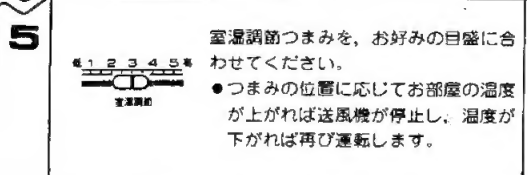 5
低1 2 3 4 5高
室温調節
室温調節つまみを，お好みの目盛に合
わせてください。
●つまみの位置に応じてお部屋の温度
が上がれば送風機が停止し，温度が
下がれば再び運転します。